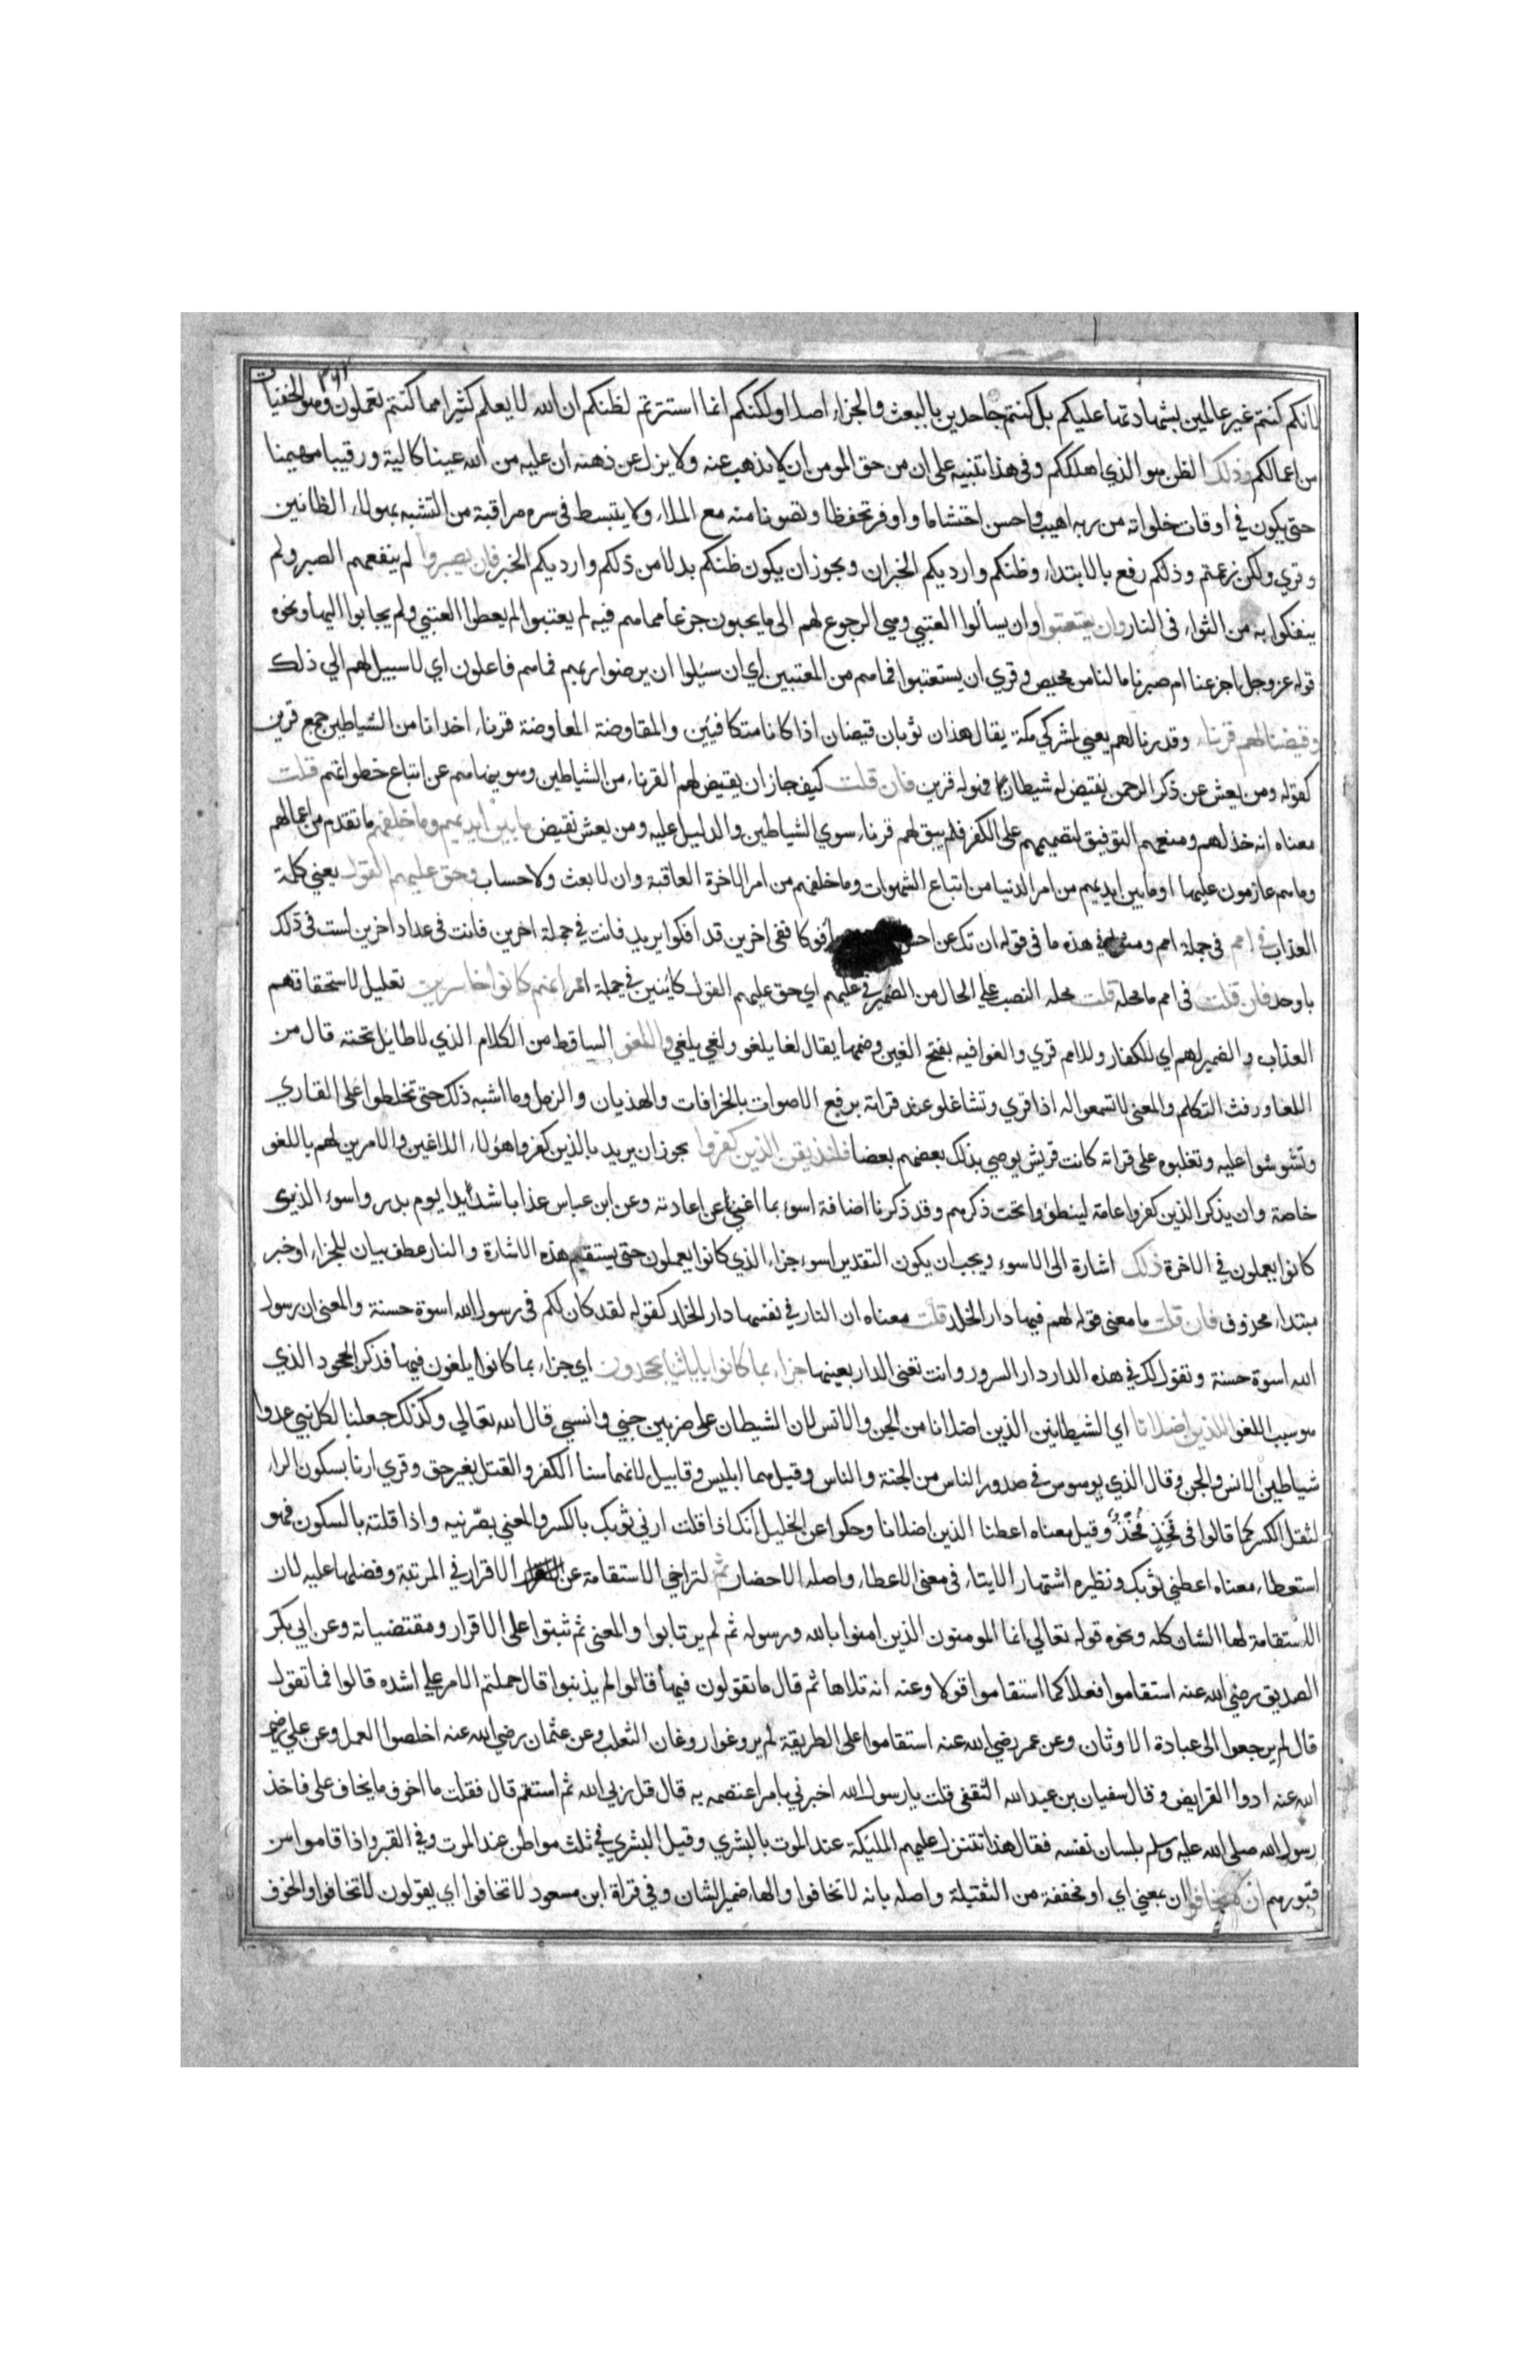 لانكم كنتم غير عالمين بشهادتها عليكم بل كنتم جاحدين بالبعث والجزاء اصلا ولكنكم انما استترتم لظنكم ان الله لا يعلم كثيرا مما كنتم تعملون وهو الخفيات
من اعمالكم وذلك الظن هو الذي اهلككم وفي هذا تنبيه على ان من حق المومن ان لا يذهب عنه ولا يزل عن ذهنه ان عليه من الله عينا كالية ورقيبا مهيمنا
حتى يكون في اوقات خلواته من ربه اهيب واحسن احتشاما واوفر تحفظا وتصونا منه مع الملاء ولا يتبسط في سره مراقبة من التشبه بهولاء الظانين
وقري ولكن زعمتم وذلكم رفع بالابتداء وظنكم وارديكم الخبران ويجوز ان يكون ظنكم بدلا من ذلكم وارديكم الخبر فان يصبروا لم ينفعهم الصبر ولم
ينفكوا به من الثواء في النار وان يستعتبوا وان يسألوا العتبي وهي الرجوع لهم الى ما يحبون جزعا مما هم فيه لم يعتبوا لم يعطوا العتبي ولم يجابوا اليها ونحوه
قوله عز وجل اجزعنا ام صبرنا ما لنا من محيص وقري ان يستعتبوا فما هم من المعتبين اي ان سئلوا ان يرضوا ربهم فما هم فاعلون اي لا سبيل لهم الي ذلك
وقيضنا لهم قرناء وقدرنا لهم يعني لمشركي مكة يقال هذان ثوبان قيضان اذا كانا متكافيين والمقاوضة المعاوضة قرناء اخدانا من الشياطين جمع قرين
كقوله ومن يعش عن ذكر الرحمن نقيض له شيطانا فهو له قرين فان قلت كيف جاز ان يقيض لهم القرناء من الشياطين وهو ينهاهم عن اتباع خطواتهم قلت
معناه انه خذلهم ومنعهم التوفيق لتصميمهم على الكفر فلم يبق لهم قرناء سوي الشياطين والدليل عليه ومن يعش نقيض ما بين ايديهم وما خلفهم ما تقدم من اعمالهم
وما هم عازمون عليها او ما بين ايديهم من امر الدنيا من اتباع الشهوات وما خلفهم من امر الاخرة العاقبة وان لا بعث ولا حساب وحق عليهم القول يعني كلمة
العذاب في امم في جملة امم ومثل في هذه ما في قوله ان تك عن احسن افوكا ففى اخرين قد افكوا يريد فانت في جملة اخرين فانت في عداد اخرين لست في ذلك
باوحد فان قلت في امم ما محله قلت محله النصب علي الحال من الضمير في عليهم اي حق عليهم القول كاينين في جملة امم انهم كانوا خاسرين تعليل لاستحقاقهم
العذاب والضمير لهم اي للكفار وللامم قري والغوا فيه بفتح الغين وضمها يقال لغا يلغو ولغي يلغي واللغو الساقط من الكلام الذي لا طايل تحته قال من
اللغا ورفث التكلم والمعني لا تسمعوا له اذا قري وتشاغلوا عند قراته برفع الاصوات بالخرافات والهذيان والزمل وما اشبه ذلك حتى تخلطوا على القاري
وتشوشوا عليه وتغلبوه على قراته كانت قريش يوصي بذلك بعضهم بعضا فلنذيقن الذين كفروا يجوز ان يريد بالذين كفروا هؤلاء اللاغين والامرين لهم باللغو
خاصة وان يذكر الذين كفروا عامة لينطووا تحت ذكرهم وقد ذكرنا اضافة اسوء بما اغني عن اعادته وعن ابن عباس عذابا شديدا يوم بدر واسوء الذي
كانوا يعملون في الاخرة ذلك اشارة الى الاسوء ويجب ان يكون التقدير اسوء جزاء الذي كانوا يعملون حتى يستقيم هذه الاشارة والنار عطف بيان للجزاء او خبر
مبتداء محذوف فان قلت ما معني قوله لهم فيها دار الخلد قلت معناه ان النار في نفسها دار الخلد كقوله لقد كان لكم في رسول الله اسوة حسنة والمعني ان رسول
الله اسوة حسنة وتقول لك في هذه الدار دار السرور وانت تعني الدار بعينها جزاء بما كانوا باياتنا يجحدون اي جزاء بما كانوا يلغون فيها فذكر الجحود الذي
هو سبب اللغو اللذين اضلانا اي الشيطانين الذين اضلانا من الجن والانس لان الشيطان على ضربين جني وانسي قال الله تعالي وكذلك جعلنا لكل نبي عدوا
شياطين الانس والجن وقال الذي يوسوس في صدور الناس من الجنة والناس وقيل هما ابليس وقابيل لانهما سنا الكفر والقتل بغير حق وقري ارنا بسكون الراء
لثقل الكسر كما قالوا في فَخِذٍ فَخْذٌ وقيل معناه اعطنا الذين اضلانا وحكوا عن الخليل انك اذا قلت ارني ثوبك بالكسر والمعني بصّرنيه واذا قلته بالسكون فهو
استعطاء معناه اعطني ثوبك ونظيره اشتهار الايتاء في معني الاعطاء واصله الاحضار ثم لتراخي الاستقامة عن الاقرار في المرتبة وفضلها عليه لان
الاستقامة لها الشان كله ونحوه قوله تعالي انما المومنون الذين امنوا بالله ورسوله ثم لم يرتابوا والمعني ثم ثبتوا على الاقرار ومقتضياته وعن ابي بكر
الصديق رضي الله عنه استقاموا فعلا كما استقاموا قولا وعنه انه تلاها ثم قال ما تقولون فيها قالوا لم يذنبوا قال حملتم الامر علي اشده قالوا فما تقول
قال لم يرجعوا الى عبادة الاوثان وعن عمر رضي الله عنه استقاموا على الطريقة لم يروغوا روغان الثعلب وعن عثمان رضي الله عنه اخلصوا العمل وعن علي رضي
الله عنه ادوا الفرايض وقال سفيان بن عبد الله الثقفي قلت يا رسول الله اخبرني بامر اعتصم به قال قل ربي الله ثم استقم قال فقلت ما اخوف ما يخاف على فاخذ
رسول الله صلى الله عليه وسلم بلسان نفسه فقال هذا تتنزل عليهم المليكة عند الموت بالبشري وقيل البشري في ثلث مواطن عند الموت وفي القبر واذا قاموا من
قبورهم ان لا تخافوا ان بمعني اي او مخففة من الثقيلة واصله بانه لا تخافوا والهاء ضمير الشان وفي قراة ابن مسعود لا تخافوا اي يقولون لا تخافوا والخوف